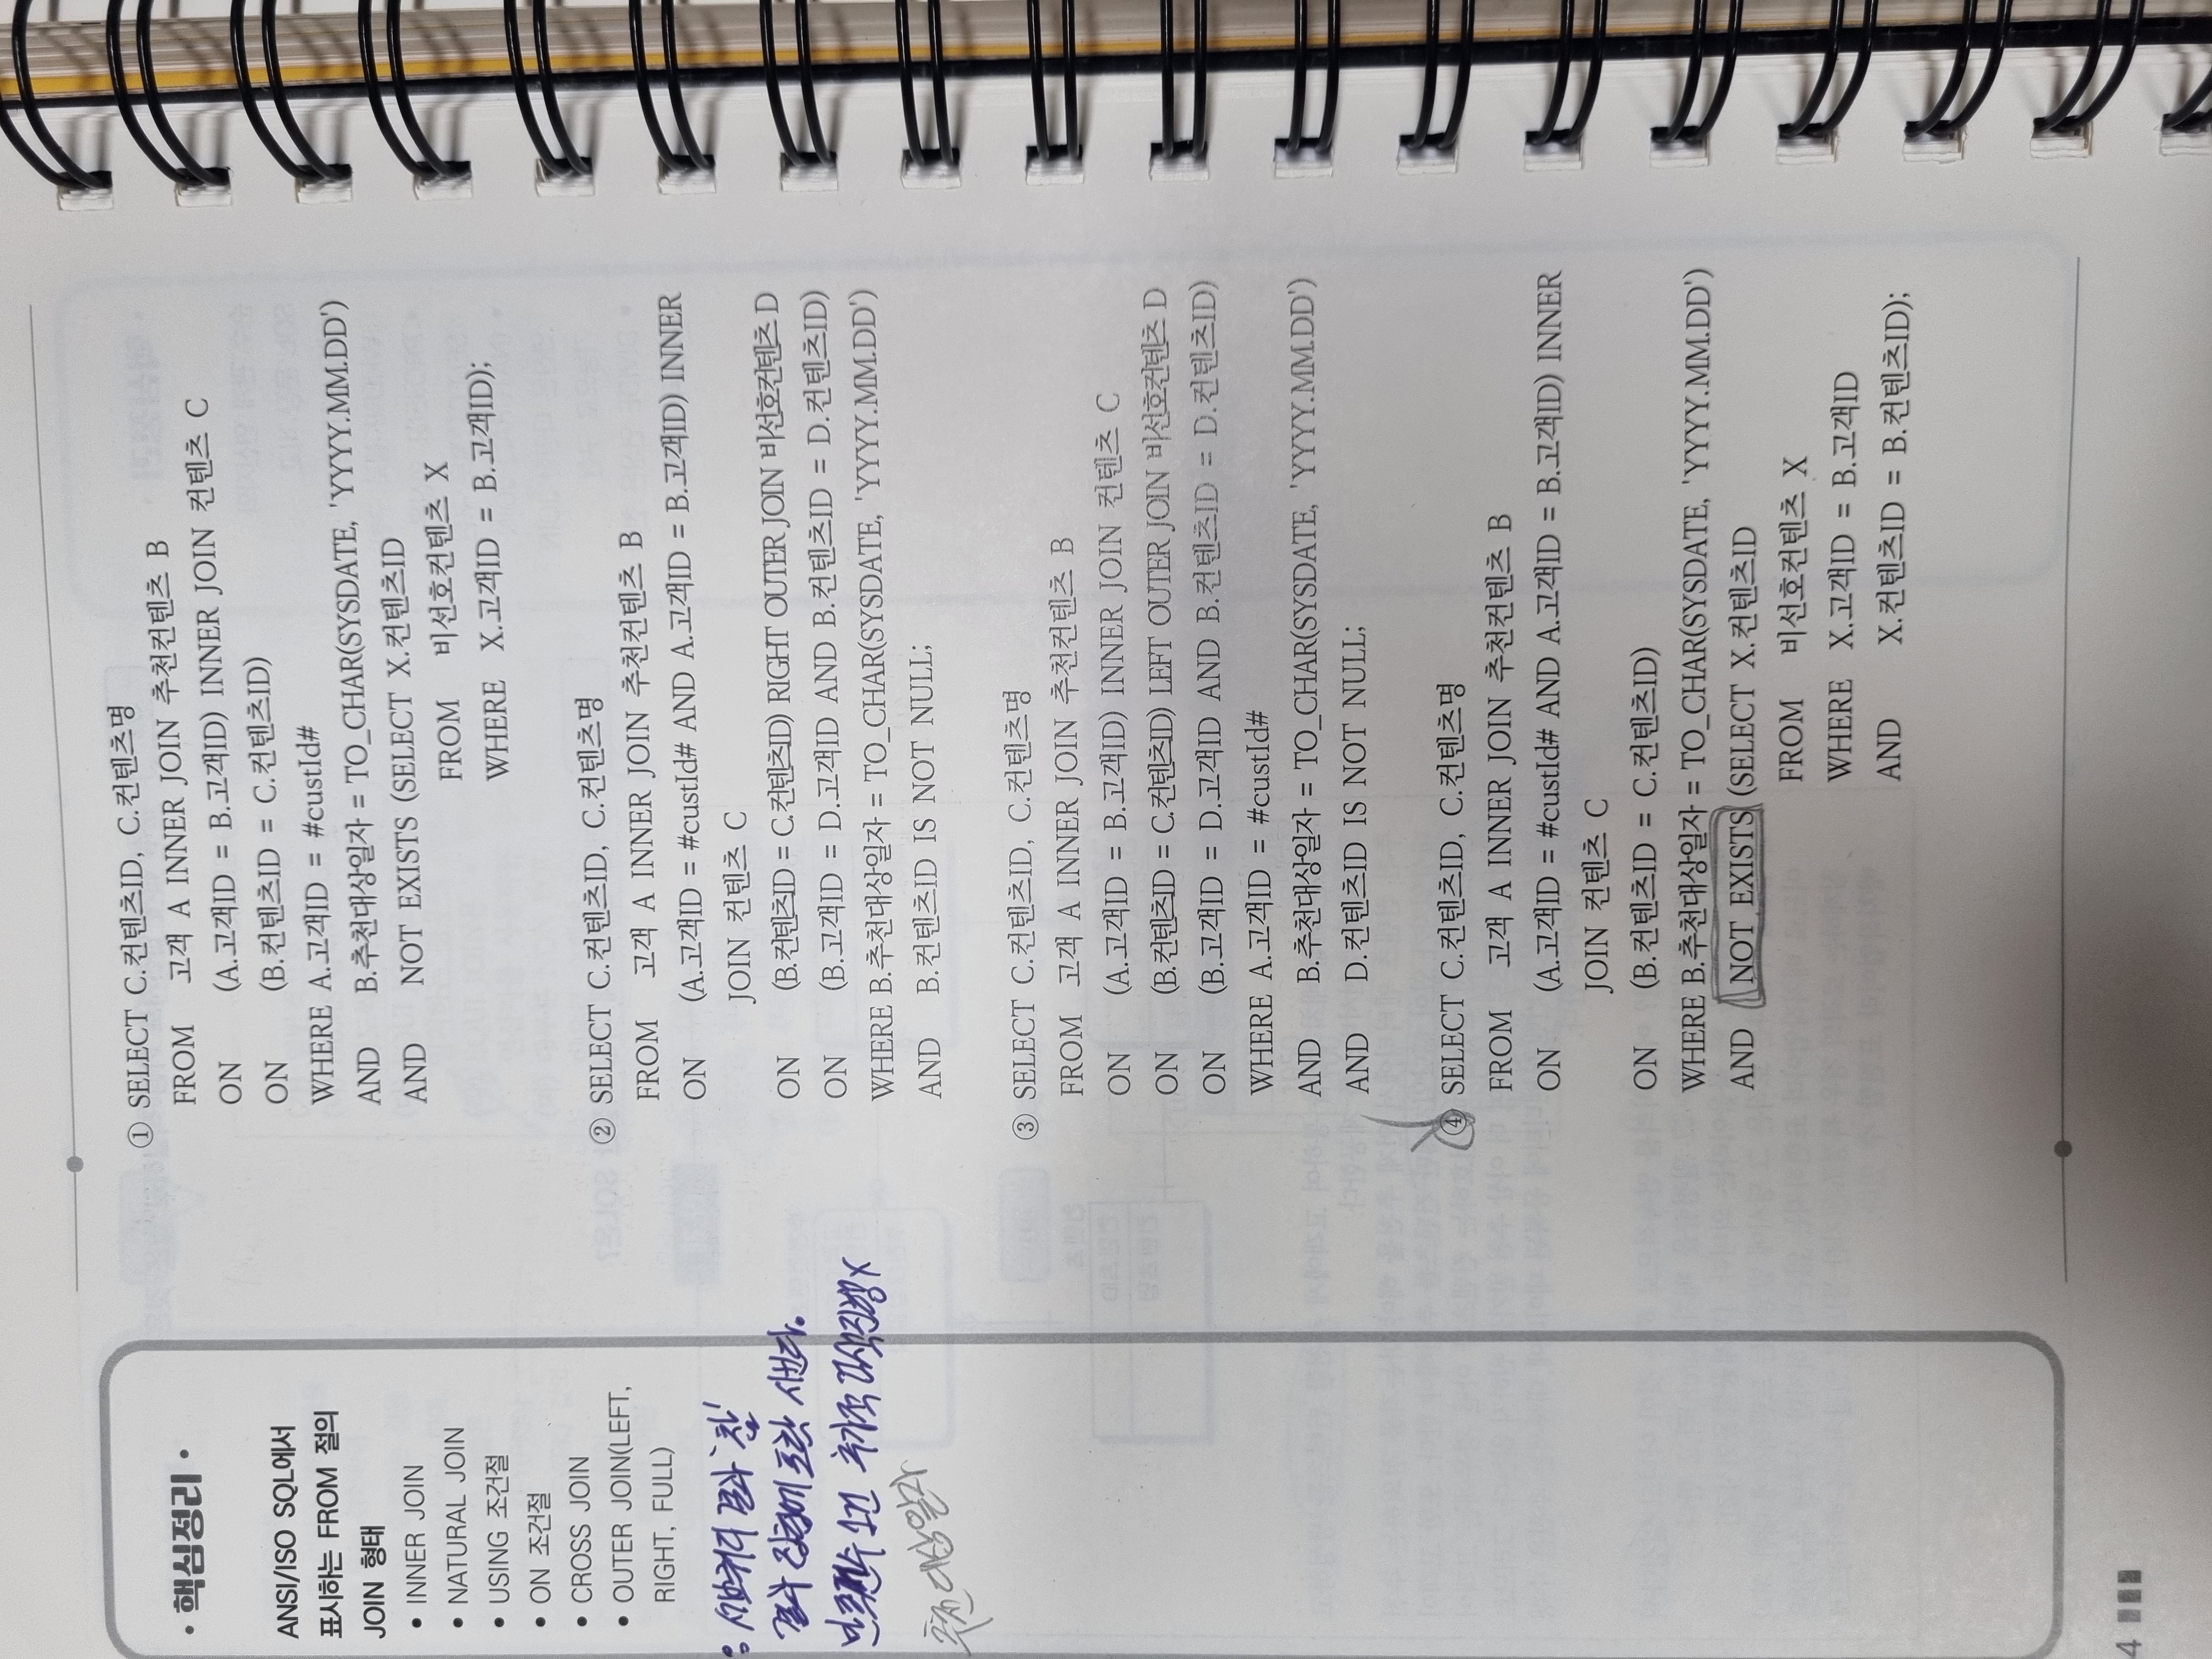 • 핵심정리 •
ANSI/ISO SQL에서
표시하는 FROM 절의
JOIN 형태
• INNER JOIN
• NATURAL JOIN
• USING 조건절
• ON 조건절
• CROSS JOIN
• OUTER JOIN(LEFT,
RIGHT, FULL)
: 서브쿼리 결과 '참'
결과 집합에 포함 시킨다.
만족건수 1건 추가적 검색진행X
추천대상일자
① SELECT C.컨텐츠ID, C.컨텐츠명
FROM 고객 A INNER JOIN 추천컨텐츠 B
ON (A.고객ID = B.고객ID) INNER JOIN 컨텐츠 C
ON (B.컨텐츠ID = C.컨텐츠ID)
WHERE A.고객ID = #custId#
AND B.추천대상일자 = TO_CHAR(SYSDATE, 'YYYY.MM.DD')
AND NOT EXISTS (SELECT X.컨텐츠ID
FROM 비선호컨텐츠 X
WHERE X.고객ID = B.고객ID);
② SELECT C.컨텐츠ID, C.컨텐츠명
FROM 고객 A INNER JOIN 추천컨텐츠 B
ON (A.고객ID = #custId# AND A.고객ID = B.고객ID) INNER
JOIN 컨텐츠 C
ON (B.컨텐츠ID = C.컨텐츠ID) RIGHT OUTER JOIN 비선호컨텐츠 D
ON (B.고객ID = D.고객ID AND B.컨텐츠ID = D.컨텐츠ID)
WHERE B.추천대상일자 = TO_CHAR(SYSDATE, 'YYYY.MM.DD')
AND B.컨텐츠ID IS NOT NULL;
③ SELECT C.컨텐츠ID, C.컨텐츠명
FROM 고객 A INNER JOIN 추천컨텐츠 B
ON (A.고객ID = B.고객ID) INNER JOIN 컨텐츠 C
ON (B.컨텐츠ID = C.컨텐츠ID) LEFT OUTER JOIN 비선호컨텐츠 D
ON (B.고객ID = D.고객ID AND B.컨텐츠ID = D.컨텐츠ID)
WHERE A.고객ID = #custId#
AND B.추천대상일자 = TO_CHAR(SYSDATE, 'YYYY.MM.DD')
AND D.컨텐츠ID IS NOT NULL;
④ SELECT C.컨텐츠ID, C.컨텐츠명
FROM 고객 A INNER JOIN 추천컨텐츠 B
ON (A.고객ID = #custId# AND A.고객ID = B.고객ID) INNER
JOIN 컨텐츠 C
ON (B.컨텐츠ID = C.컨텐츠ID)
WHERE B.추천대상일자 = TO_CHAR(SYSDATE, 'YYYY.MM.DD')
AND NOT EXISTS (SELECT X.컨텐츠ID
FROM 비선호컨텐츠 X
WHERE X.고객ID = B.고객ID
AND X.컨텐츠ID = B.컨텐츠ID);